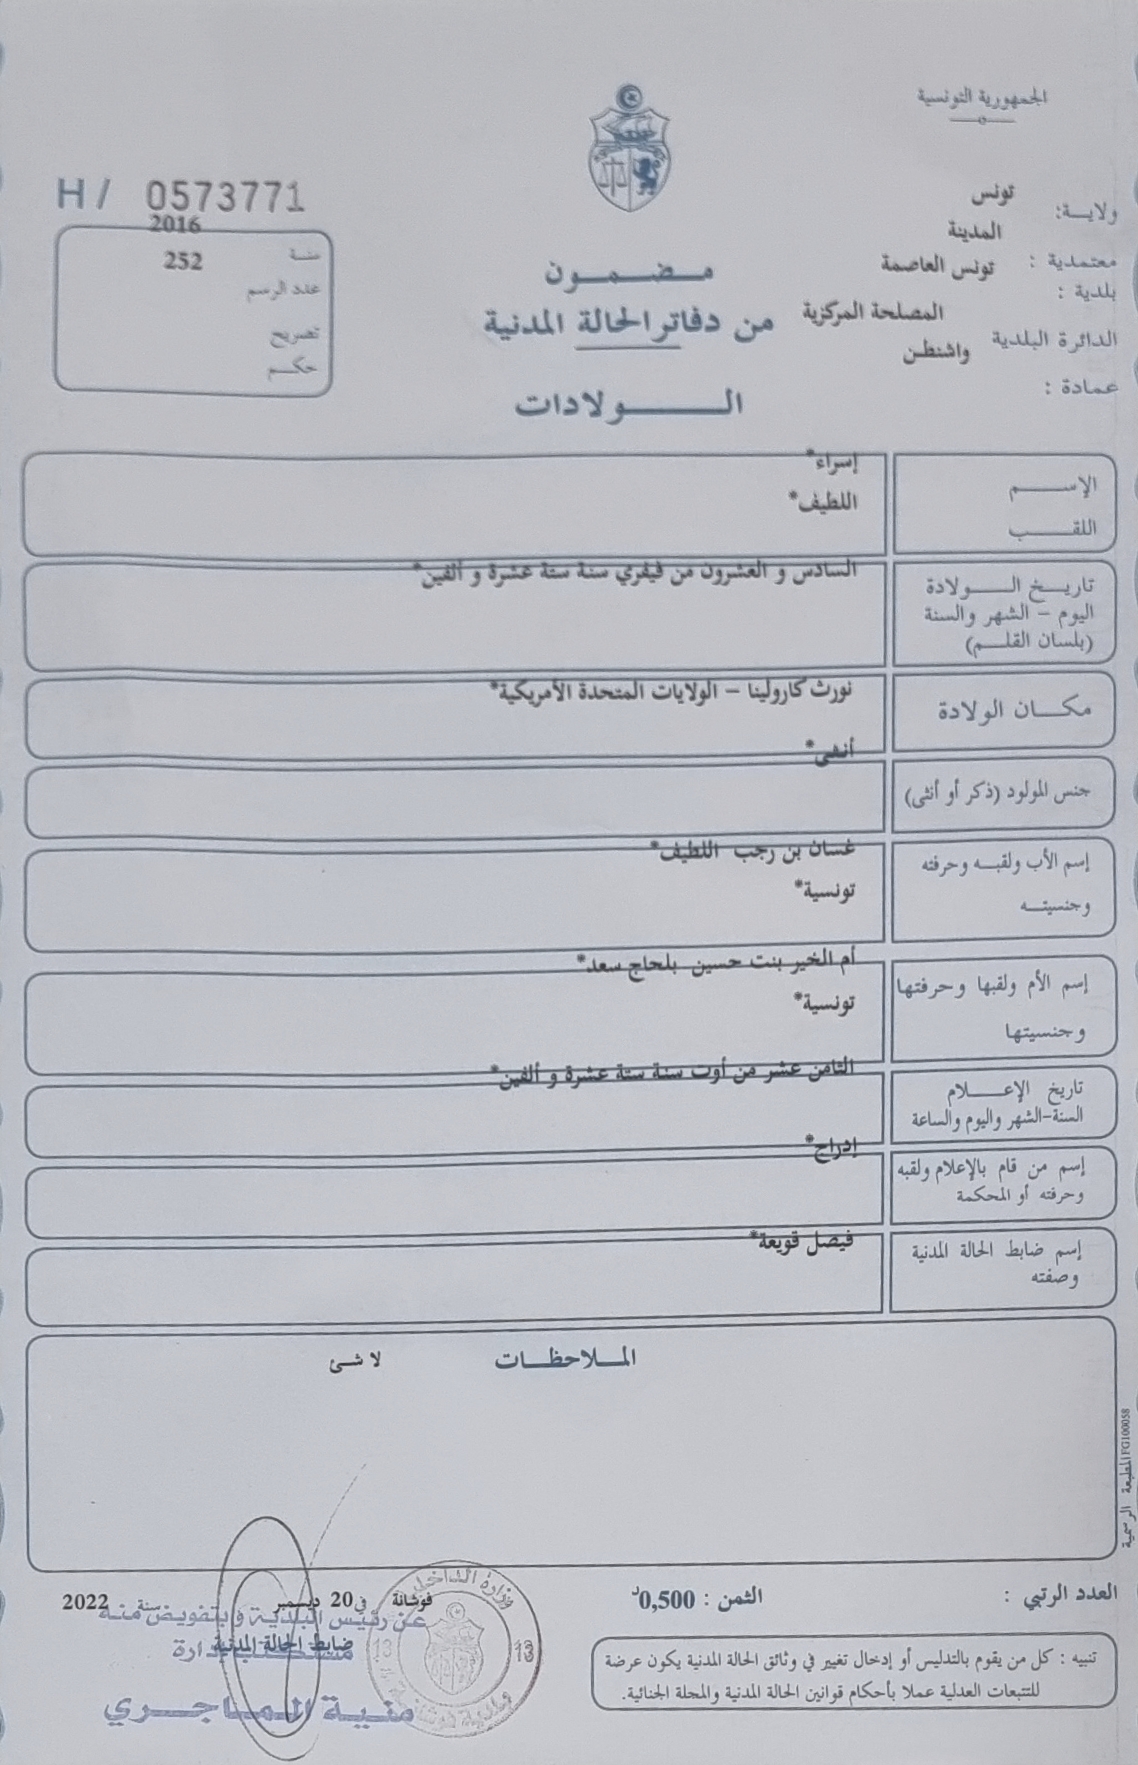 الجمهورية التونسية
H/ 0573771
2016
سنة
252
عدد الرسم
تصريح
حكم
ولاية: تونس
المدينة
معتمدية : تونس العاصمة
بلدية :
المصلحة المركزية
الدائرة البلدية
واشنطن
عمادة :
مضمون
من دفاتر الحالة المدنية
الولادات
الإسم
إسراء*
اللقب
اللطيف*
تاريخ الولادة
اليوم - الشهر والسنة
(بلسان القلم)
السادس و العشرون من فيفري سنة ستة عشرة و ألفين*
مكان الولادة
نورث كارولينا – الولايات المتحدة الأمريكية*
جنس المولود (ذكر أو أنثى)
أنثى*
إسم الأب ولقبه وحرفته
وجنسيته
غسان بن رجب اللطيف*
تونسية*
إسم الأم ولقبها وحرفتها
وجنسيتها
أم الخير بنت حسين بلحاج سعد*
تونسية*
تاريخ الإعلام
السنة-الشهر واليوم والساعة
الثامن عشر من أوت سنة ستة عشرة و ألفين*
إسم من قام بالإعلام ولقبه
وحرفته أو المحكمة
إدراج*
إسم ضابط الحالة المدنية
وصفته
فيصل قويعة*
الملاحظات
لا شئ
المطبعة الرسمية FG100058
العدد الرتبي :
الثمن : 0,500د
فوشانة في 20 ديسمبر سنة 2022
عن رئيس البلدية و بتفويض منه
ضابط الحالة المدنية
منية الماجري
وزارة الداخلية
13 13
بلدية فوشانة
تنبيه : كل من يقوم بالتدليس أو إدخال تغيير في وثائق الحالة المدنية يكون عرضة
للتتبعات العدلية عملا بأحكام قوانين الحالة المدنية والمجلة الجنائية.